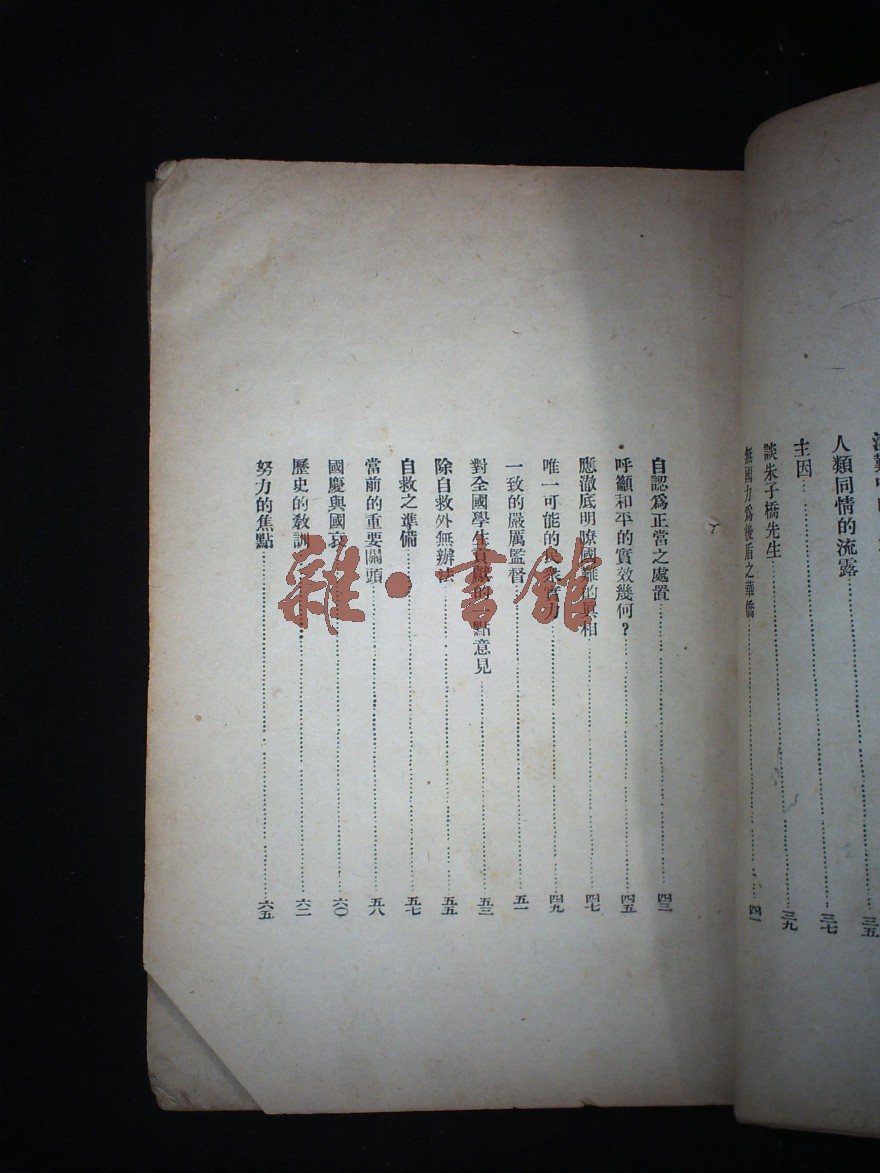 人類同情的流露 三七
主因
談朱子橋先生 三九
無國力爲後盾之華僑 四一
自認爲正當之處置 四三
呼籲和平的實效幾何？ 四五
應澈底明瞭國難的眞相 四七
唯一可能的民衆實力 四九
一致的嚴厲監督 五一
對全國學生貢獻的一點意見 五三
除自救外無辦法 五五
自救之準備 五七
當前的重要關頭 五八
國慶與國哀 六〇
歷史的敎訓 六二
努力的焦點 六五
雜·書館